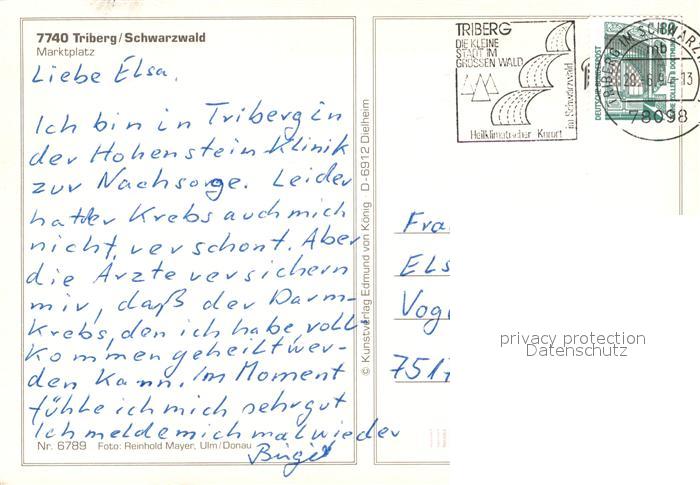 7740 Triberg/Schwarzwald
Marktplatz
Liebe Elsa,
Ich bin in Triberg in
der Hohenstein Klinik
zur Nachsorge. Leider
hat der Krebs auch mich
nicht verschont. Aber
die Ärzte versichern
mir, daß der Darm-
Krebs, den ich habe voll-
kommen geheilt wer-
den kann. Im Moment
fühle ich mich sehr gut
Ich melde mich mal wieder
Birgit
Nr. 6789 Foto: Reinhold Mayer, Ulm/Donau
© Kunstverlag Edmund von König D-6912 Dielheim
TRIBERG
DIE KLEINE
STADT IM
GROSSEN WALD
im Schwarzwald
Heilklimatischer Kurort
DEUTSCHE BUNDESPOST
80
TRIBERG IM SCHWARZW
mb
-6.9
-13
78098
Fra
Els
Vog
751
privacy protection
Datenschutz